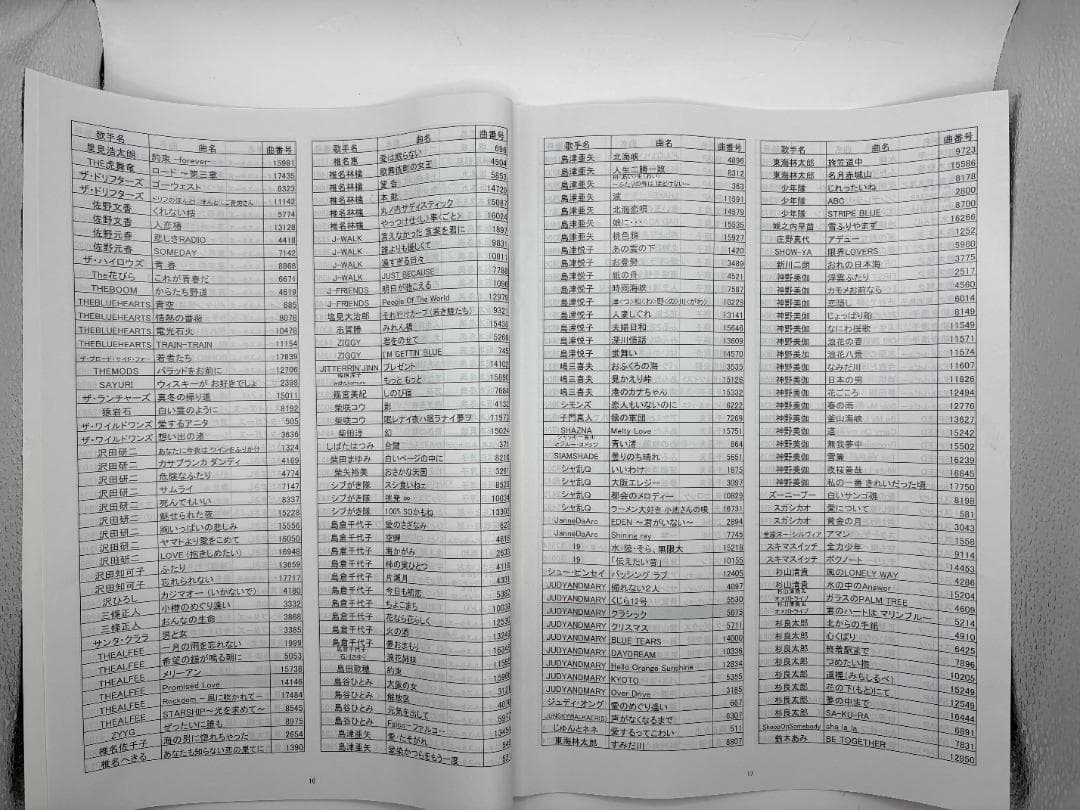 歌手名 曲名 曲番号
里見浩太朗 約束 -forever- 15981
THE虎舞竜 ロード ～第三章 17435
ザ・ドリフターズ ゴーウェスト 6323
ザ・ドリフターズ 11142
佐野文香 くれない枝 5774
佐野文香 人恋橋 13128
佐野元春 悲しきRADIO 4418
佐野元春 SOMEDAY 7142
ザ・ハイロウズ 青春 8868
The花びら これが青春だ 6671
THEBOOM からたち野道 4619
THEBLUEHEARTS 青空 685
THEBLUEHEARTS 情熱の薔薇 8076
THEBLUEHEARTS 電光石火 10478
THEBLUEHEARTS TRAIN-TRAIN 11154
ザ・ブロード・サイド・フォー 若者たち 17639
THEMODS バラッドをお前に 12706
SAYURI ウィスキーが お好きでしょ 2398
ザ・ランチャーズ 真冬の帰り道 15011
猿岩石 白い雲のように 8192
ザ・ワイルドワンズ 愛するアニタ 505
ザ・ワイルドワンズ 想い出の渚 3636
沢田研二 あなたに今夜は ワインをふりかけ 1324
沢田研二 カサブランカ ダンディ 4169
沢田研二 危険なふたり 4774
沢田研二 サムライ 7147
沢田研二 死んでもいい 8337
沢田研二 魅せられた夜 15228
沢田研二 胸いっぱいの悲しみ 15556
沢田研二 ヤマトより愛をこめて 16050
沢田研二 LOVE (抱きしめたい) 16948
沢田知可子 ふたり 13659
沢田知可子 忘れられない 17717
沢ひろし カジマオー (いかないで) 4180
三條正人 小樽のめぐり逢い 3332
三條正人 おんなの生命 3868
サンタ・クララ 男と女 3385
THEALFEE 一月の雨を忘れない 1999
THEALFEE 希望の鐘が鳴る朝に 5053
THEALFEE メリーアン 15738
THEALFEE Promised Love 14146
THEALFEE Rockdom -風に吹かれて- 17484
THEALFEE STARSHIP～光を求めて～ 8545
ZYYG ぜったいに誰も 8975
椎名佐千子 海の男に惚れちゃった 2654
椎名へきる あなたも知らない恋の果てに 1390
16
歌手名 曲名 曲番号
椎名恵 愛は眠らない 696
椎名林檎 歌舞伎町の女王 4504
椎名林檎 茎 5853
椎名林檎 本能 14720
椎名林檎 丸ノ内サディスティック 15087
椎名林檎 やっつけ仕(し)事(ごと) 16024
J-WALK 言えなかった 言葉を君に 1897
J-WALK 誰よりも優しくて 9831
J-WALK 遠すぎる日々 10811
J-WALK JUST BECAUSE 7788
J-FRIENDS 明日が聴こえる
J-FRIENDS People Of The World
塩見大治郎 それ行けカープ (若き鯉たち)
志賀勝 みれん橋
ZIGGY 君をのせて
ZIGGY I'M GETTIN' BLUE
JITTERIN'JINN プレゼント
もっと もっと
篠宮美紀 しのび宿
柴咲コウ 影
柴咲コウ 眠レナイ夜ハ眠ラナイ夢ヲ
柴田淳 幻
しばたはつみ 合鍵
柴田まゆみ 白いページの中に
柴矢裕美 おさかな天国
シブがき隊 スシ食いねェ
シブがき隊 挑発∞
シブがき隊 100% SOかもね
島倉千代子 愛のさざなみ
島倉千代子 空蝉
島倉千代子 海かがみ
島倉千代子 柿の実ひとつ
島倉千代子 片瀬月
島倉千代子 今日も初恋
島倉千代子 ちよこまち
島倉千代子 花なら花らしく
島倉千代子 火の酒
島倉千代子 夢おまもり
浪花姉妹
島田歌穂 約束
島谷ひとみ 大阪の女
島谷ひとみ 解放区
島谷ひとみ 元気を出して
島谷ひとみ Falco-ファルコ-
島津亜矢 愛・たそがれ
島津亜矢 愛染かつらをもう一度
歌手名 曲名 曲番号
島津亜矢 北海峡 4896
島津亜矢 人生二勝一敗 8312
島津亜矢 363
島津亜矢 波 11591
島津亜矢 北海恋唄 14579
島津亜矢 娘に・・・ 15635
島津亜矢 桃色鴉 15927
島津悦子 あの雲の下 1420
島津悦子 お登勢 3489
島津悦子 紙の舟 4521
島津悦子 時雨海峡 7587
島津悦子 津(つ)和(わ)野(の)川(がわ) 10229
島津悦子 人妻しぐれ 13141
島津悦子 夫婦日和 15646
島津悦子 深川情話 13609
島津悦子 蛍舞い 14570
嶋三喜夫 おふくろの海 3535
嶋三喜夫 見かえり峠 15126
嶋三喜夫 港のカナちゃん 15332
シモンズ 恋人もいないのに 6222
子門真人 猿の軍団 7269
SHAZNA Melty Love 15751
青い渚 864
SIAMSHADE 曇りのち晴れ 5651
シャ乱Q いいわけ 1875
シャ乱Q 大阪エレジー 3097
シャ乱Q 都会のメロディー 10629
シャ乱Q ラーメン大好き 小池さんの唄 16731
JanneDaArc EDEN ～君がいない～ 2894
JanneDaArc Shining ray 7745
19 水・陸・そら、無限大 15218
19 「伝えたい音」 10155
シュー・ピンセイ パッシング ラブ 12405
JUDYANDMARY 帰れない2人 4097
JUDYANDMARY くじら12号 5530
JUDYANDMARY クラシック 5675
JUDYANDMARY クリスマス 5711
JUDYANDMARY BLUE TEARS 14000
JUDYANDMARY DAYDREAM 10336
JUDYANDMARY Hello Orange Sunshine 12834
JUDYANDMARY KYOTO 5355
JUDYANDMARY Over Drive 3185
ジュディ・オング 愛のめぐり逢い 667
JUNSKYWALKER(S) 声がなくなるまで 6307
じゅんとネネ 愛するってこわい 511
東海林太郎 すみだ川 8807
17
歌手名 曲名 曲番号
東海林太郎 旅笠道中 9723
東海林太郎 名月赤城山 15586
少年隊 じれったいね 8178
少年隊 ABC 2800
少年隊 STRIPE BLUE 8700
城之内早苗 雪ふりやまず 16266
庄野真代 アデュー 1252
SHOW-YA 限界LOVERS 5960
新川二朗 おれの日本海 3775
神野美伽 浮雲ふたり 2517
神野美伽 カモメお前なら 4560
神野美伽 恋唄し 6014
神野美伽 じょっぱり船 8149
神野美伽 なにわ援歌 11549
神野美伽 浪花の春 11571
神野美伽 浪花八景 11574
神野美伽 なみだ川 11607
神野美伽 日本の男 11826
神野美伽 花ごころ 12494
神野美伽 春の雨 12776
神野美伽 釜山海峡 13627
神野美伽 道 15242
神野美伽 無我夢中 15502
神野美伽 雪簾 16239
神野美伽 夜桜蕾哉 16645
神野美伽 私の一番 きれいだった頃 17750
ズーニーブー 白いサンゴ礁 8198
スガシカオ 愛について 581
スガシカオ 黄金の月 3043
アマン 1558
スキマスイッチ 全力少年 9114
スキマスイッチ ボクノート 14453
杉山清貴 風のLONELY WAY 4286
杉山清貴 水の中のAnswer 15204
ガラスのPALM TREE 4609
君のハートは マリンブルー 5214
杉良太郎 北からの手紙 4910
杉良太郎 心くばり 6425
杉良太郎 終着駅まで 7896
杉良太郎 つめたい指 10205
杉良太郎 道標(みちしるべ) 15249
杉良太郎 花の下(もと)にて 12549
杉良太郎 夢の中まで 16444
杉良太郎 SA-KU-RA 6891
SkoopOnSomebody sha la la 7831
鈴木あみ BE TOGETHER 12950